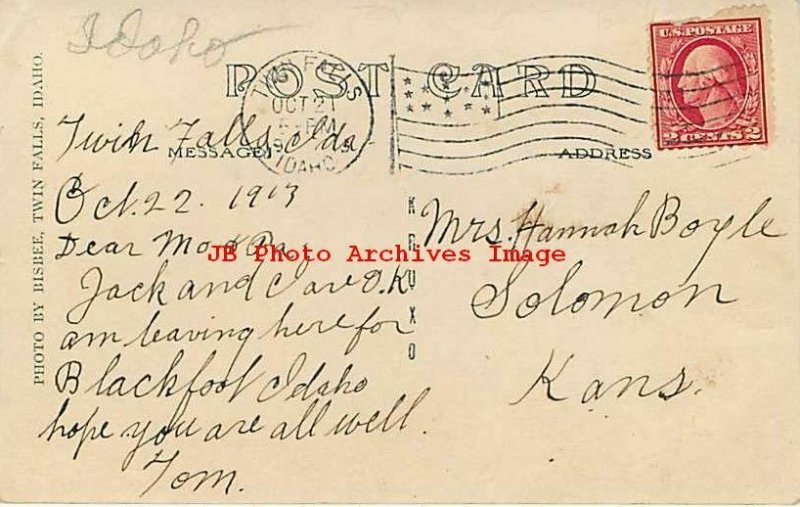 Idaho
POST CARD
TWIN FALLS
OCT 21
PM
IDAHO
U.S. POSTAGE
2 CENTS 2
MESSAGE
ADDRESS
PHOTO BY BISBEE, TWIN FALLS, IDAHO.
Twin Falls, Ida.
Oct. 22. 1913
Dear Ma & Pa
Jack and I are O.K
am leaving here for
Blackfoot Idaho
hope you are all well.
Tom.
KRUXO
Mrs. Hannah Boyle
Solomon
Kans.
JB Photo Archives Image